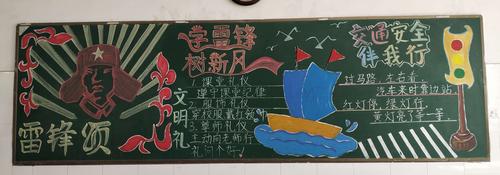 雷锋颂
学雷锋
树新风
文明礼
课堂礼仪
遵守课堂纪律
2.服饰礼仪
穿校服戴红领巾
3.尊师礼仪
主动向老师行
礼问个好!
交通安全
伴我行
过马路,左右看,
汽车来时靠边站。
红灯停,绿灯行,
黄灯亮了等一等。